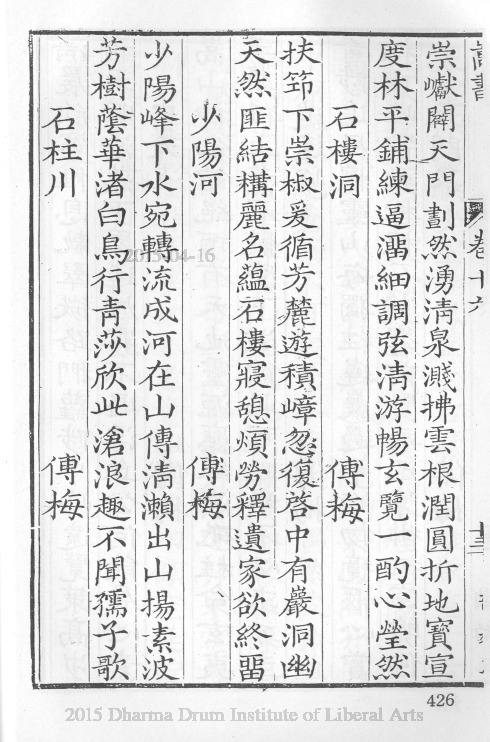 嵩書
卷十六
十三
崇巘闢天門劃然湧淸泉濺拂雲根潤圓折地寶宣
度林平鋪練逼澑細調弦淸游暢玄覽一酌心瑩然
石樓洞
傅梅
扶筇下崇椒爰循芳麓遊積嶂忽復啓中有巖洞幽
天然匪結構麗名蘊石樓寢憩煩勞釋遺家欲終畱
少陽河
傅梅
少陽峰下水宛轉流成河在山傳淸瀨出山揚素波
芳樹蔭華渚白鳥行靑莎欣此滄浪趣不聞孺子歌
石柱川
傅梅
2015-04-16
426
2015 Dharma Drum Institute of Liberal Arts